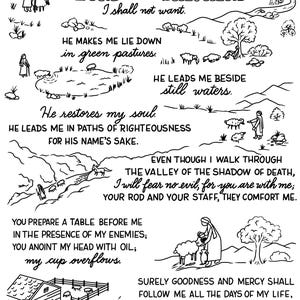 I shall not want.
HE MAKES ME LIE DOWN
in green pastures.
HE LEADS ME BESIDE
still waters.
He restores my soul.
HE LEADS ME IN PATHS OF RIGHTEOUSNESS
FOR HIS NAME'S SAKE.
EVEN THOUGH I WALK THROUGH
THE VALLEY OF THE SHADOW OF DEATH,
I will fear no evil, for you are with me;
YOUR ROD AND YOUR STAFF, THEY COMFORT ME.
YOU PREPARE A TABLE BEFORE ME
IN THE PRESENCE OF MY ENEMIES;
YOU ANOINT MY HEAD WITH OIL;
my cup overflows.
SURELY GOODNESS AND MERCY SHALL
FOLLOW ME ALL THE DAYS OF MY LIFE,